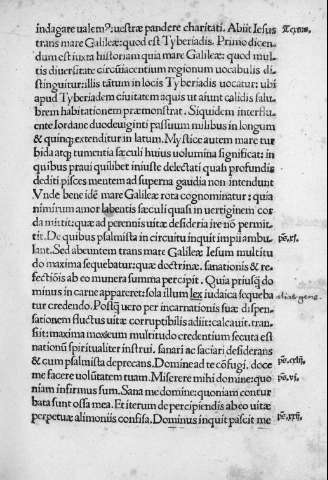 indagare ualem?: uestræ pandere charitati. Abiit Iesus
trans mare Galileæ: quod est Tyberiadis. Primo dicen
dum est iuxta historiam quia mare Galileæ: quod mul
tis diuersitate circūiacentium regionum uocabulis di
stinguitur: illis tātum in locis Tyberiadis uocatur: ubi
apud Tyberiadem ciuitatem aquis ut aiunt calidis salu
brem habitationem præmonstrat. Siquidem interflu
ente Iordane duodeuiginti passuum milibus in longum
& quinq; extenditur in latum. Mystice autem mare tur
bida atq; tumentia sæculi huius uolumina significat: in
quibus praui quilibet iniuste delectati quasi profundis
dediti pisces mentem ad superna gaudia non intendunt
Vnde bene idē mare Galileæ rota cognominatur: quia
nimirum amor labentis sæculi quasi in uertiginem cor
da mittit: quæ ad perennis uitæ desideria ire nō permit
tit. De quibus psalmista in circuitu inquit impii ambu
lant. Sed abeuntem trans mare Galileæ Iesum multitu
do maxima sequebatur: quæ doctrinæ. sanationis & re
fectiōis ab eo munera summa percipit. Quia priusq̄ do
minus in carne appareret: sola illum lex iudaica sequeba
tur credendo. Postq̄ uero per incarnationis suæ dispen
sationem fluctus uitæ corruptibilis adiit: calcauit. tran
siit: maxima mox eum multitudo credentium secuta est
nationū spiritualiter instrui. sanari ac saciari desiderans
& cum psalmista deprecans. Domine ad te cōfugi. doce
me facere uolūtatem tuam. Miserere mihi domine: quo
niam infirmus sum. Sana me domine: quoniam contur
bata sunt ossa mea. Et iterum de percipiendis ab eo uitæ
perpetuæ alimoniis confisa. Dominus inquit pascit me
Textus.
pš. xi.
pš. cxlij.
pš. vi.
pš. xxij.